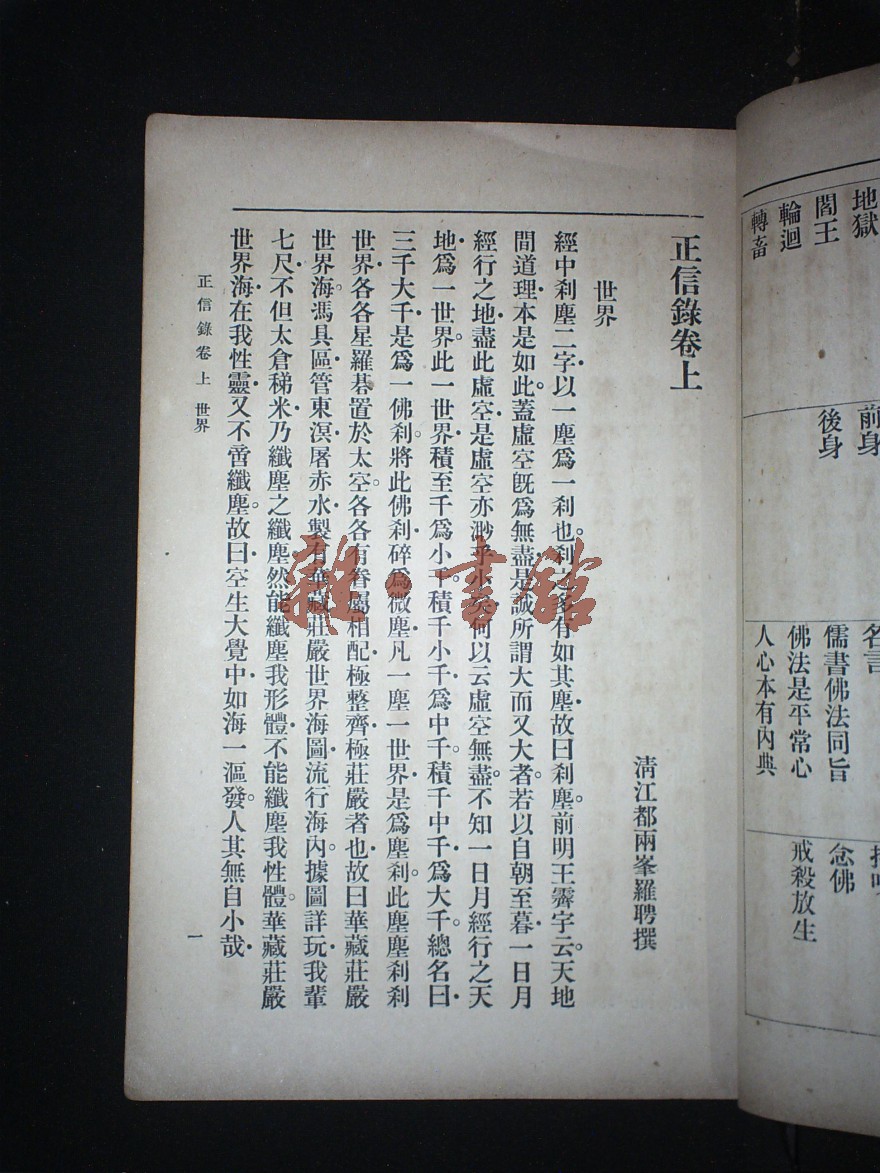 地獄
閻王
輪迴
轉畜
前身
後身
名言
儒書佛法同旨
佛法是平常心
人心本有內典
念佛
戒殺放生
正信錄卷上
清江都兩峯羅聘撰
世界
經中刹塵二字以一塵爲一刹也。刹之多有如其塵故曰刹塵前明王霽宇云天地
間道理本是如此。蓋虛空既爲無盡是誠所謂大而又大者。若以自朝至暮一日月
經行之地盡此虛空是虛空亦渺乎小矣何以云虛空無盡。不知一日月經行之天
地爲一世界。此一世界積至千爲小千。積千小千爲中千。積千中千爲大千。總名曰
三千大千是爲一佛刹。將此佛刹碎爲微塵凡一塵一世界是爲塵刹。此塵塵刹刹
世界各各星羅碁置於太空。各各有眷屬相配極整齊極莊嚴者也。故曰華藏莊嚴
世界海。馮具區管東溟屠赤水製有華藏莊嚴世界海圖流行海內。據圖詳玩我輩
七尺不但太倉稊米乃纖塵之纖塵然能纖塵我形體不能纖塵我性體。華藏莊嚴
世界海在我性靈又不啻纖塵。故曰空生大覺中如海一漚發。人其無自小哉
正信錄卷上 世界
一
雜·書館